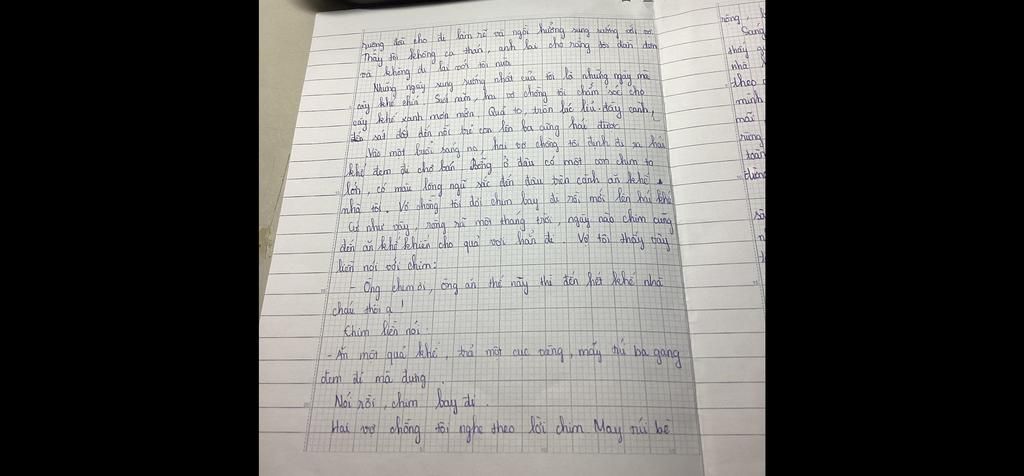 ruộng đất cho đi làm rẽ và ngồi hưởng sung sướng với vợ.
Thấy tôi không ca thán, anh lại cho rằng tôi đần độn
và không đi lại với tôi nữa.
Những ngày sung sướng nhất của tôi là những ngày mà
cây khế chín. Suố năm, hai vợ chồng tôi chăm sóc cho
cây khế xanh mơn mởn. Quả to, tròn lúc lỉu đầy cành,
đến sát đất đến nỗi trẻ con lên ba cũng hái được.
Vào một buổi sáng nọ, hai vợ chồng tôi định đi ra hái
khế đem đi chợ bán. Bỗng ở đâu có một con chim to
lớn, có màu lông ngũ sắc đến đậu trên cành ăn khế
nhà tôi. Vợ chồng tôi đợi chim bay đi rồi mới lên hái khế
Cứ như vậy, ròng rã một tháng trời, ngày nào chim cũng
đến ăn khế khiến cho quả vơi hẳn đi. Vợ tôi thấy vậy
liền nói với chim:
- Ông chim ơi, ông ăn thế này thì đến hết khế nhà
cháu thôi ạ!
Chim liền nói.
- Ăn một quả khế, trả một cục vàng, mấy túi ba gang
đem đi mà đựng.
Nói rồi, chim bay đi.
Hai vợ chồng tôi nghe theo lời chim May túi bé
rông,
Sáng
thấy
nhà
theo
mình
mãi
rừng
toàn
đường